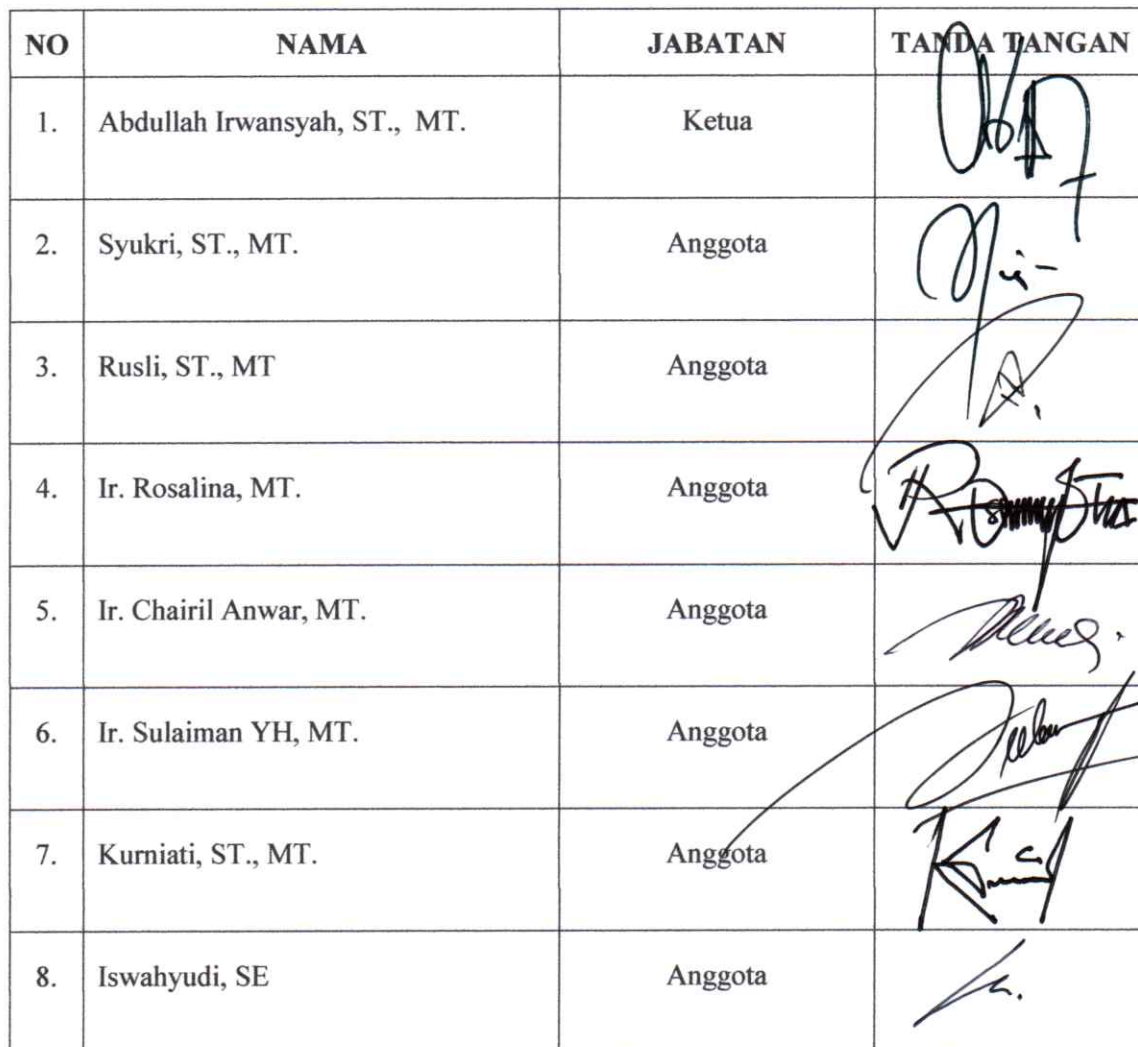 NO NAMA JABATAN TANDA TANGAN
1. Abdullah Irwansyah, ST., MT. Ketua
2. Syukri, ST., MT. Anggota
3. Rusli, ST., MT Anggota
4. Ir. Rosalina, MT. Anggota
5. Ir. Chairil Anwar, MT. Anggota
6. Ir. Sulaiman YH, MT. Anggota
7. Kurniati, ST., MT. Anggota
8. Iswahyudi, SE Anggota